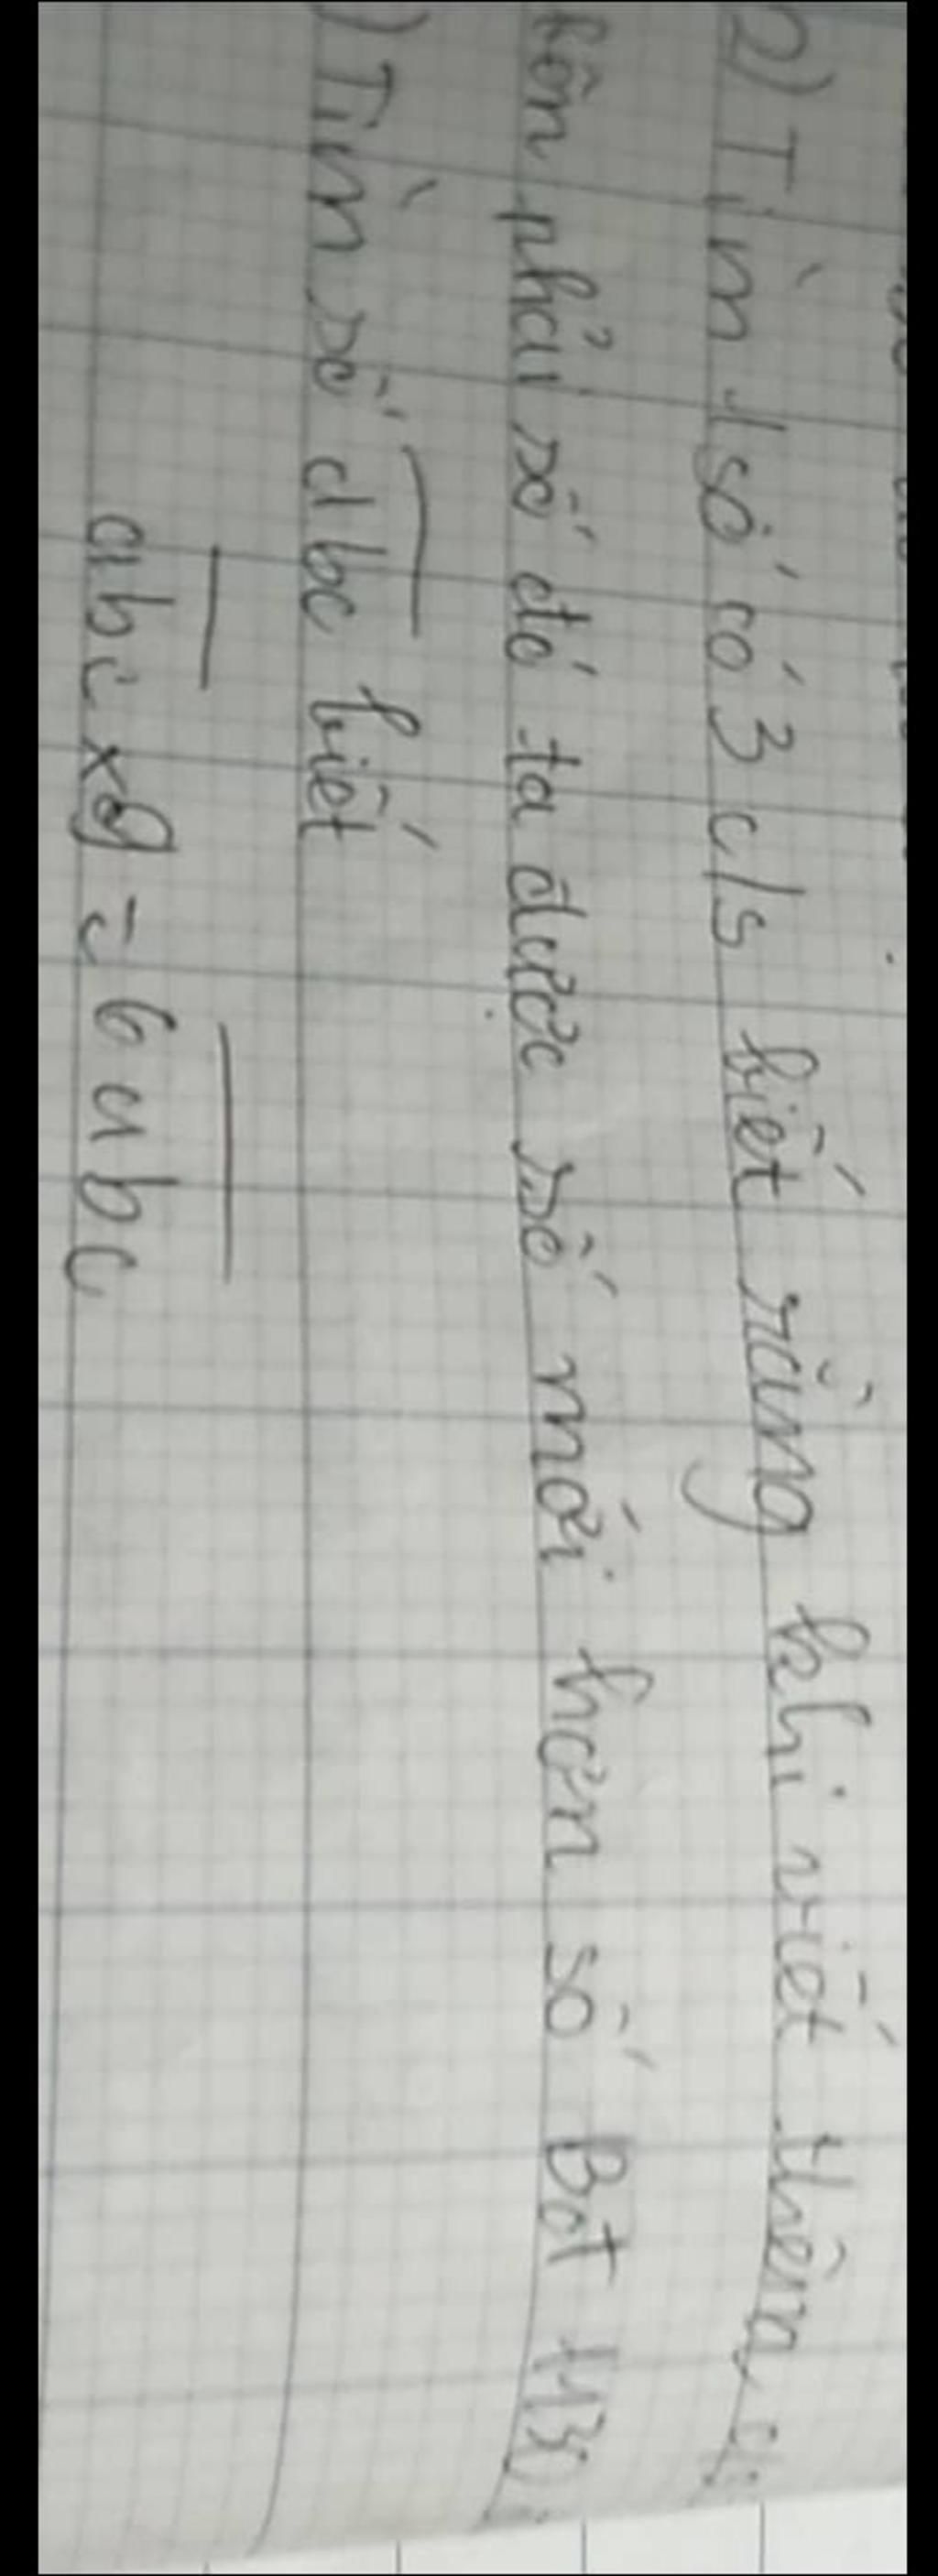 2) Tìm 1 số có 3 c/s biết rằng khi viết thêm
bên phải số đó ta được số mới hơn số Bđ
) Tìm số abc biết
abc x 9 = 6abc